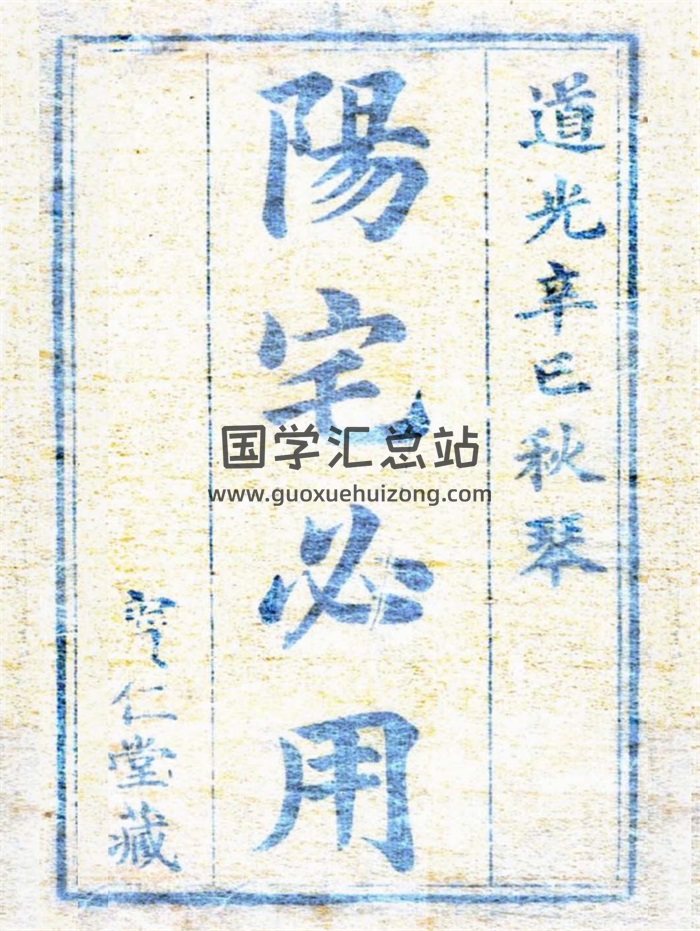 道光辛巳秋琴
陽宅必用
仁堂藏
国学汇总站
www.guoxuehuizong.com